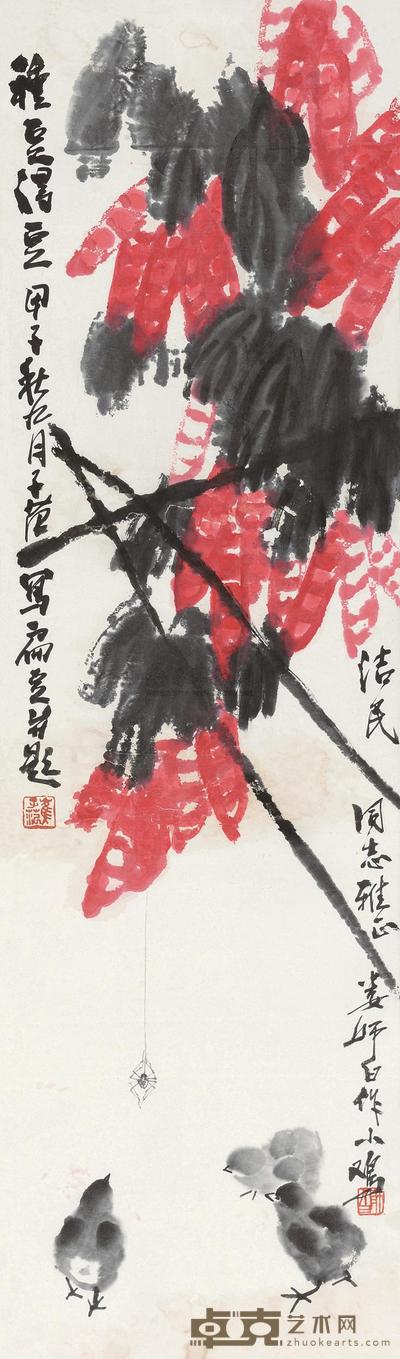 種豆得豆 甲子秋九月子范寫扁豆并題
崔子范
洁民
同志雅正
娄师白作小鸡
卓克艺术网
www.zhuokearts.com